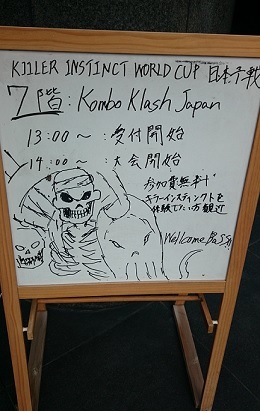 KILLER INSTINCT WORLD CUP 日本予戦
7階：Kombo Klash Japan
13:00～：受付開始
14:00～：大会開始
参加費無料！
キラーインスティンクトを
体験してたい方歓迎
Wellcome